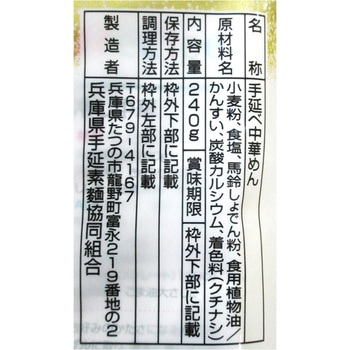 名称 手延べ中華めん
原材料名 小麦粉、食塩、馬鈴しょでん粉、食用植物油/
かんすい、炭酸カルシウム、着色料(クチナシ)
内容量 240g 賞味期限 枠外下部に記載
保存方法 枠外下部に記載
調理方法 枠外左部に記載
製造者 〒679-4167
兵庫県たつの市龍野町富永219番地の2
兵庫県手延素麺協同組合